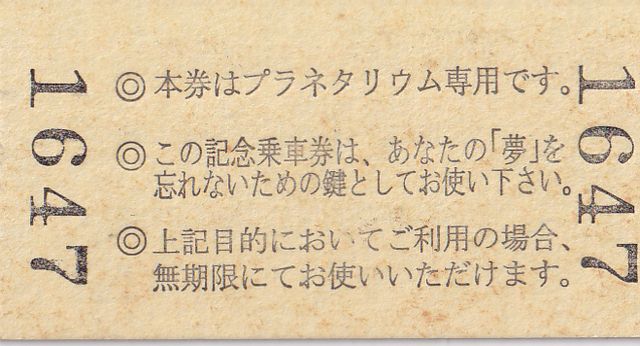 1647
◎本券はプラネタリウム専用です。
◎この記念乗車券は、あなたの「夢」を
忘れないための鍵としてお使い下さい。
◎上記目的においてご利用の場合、
無期限にてお使いいただけます。
1647